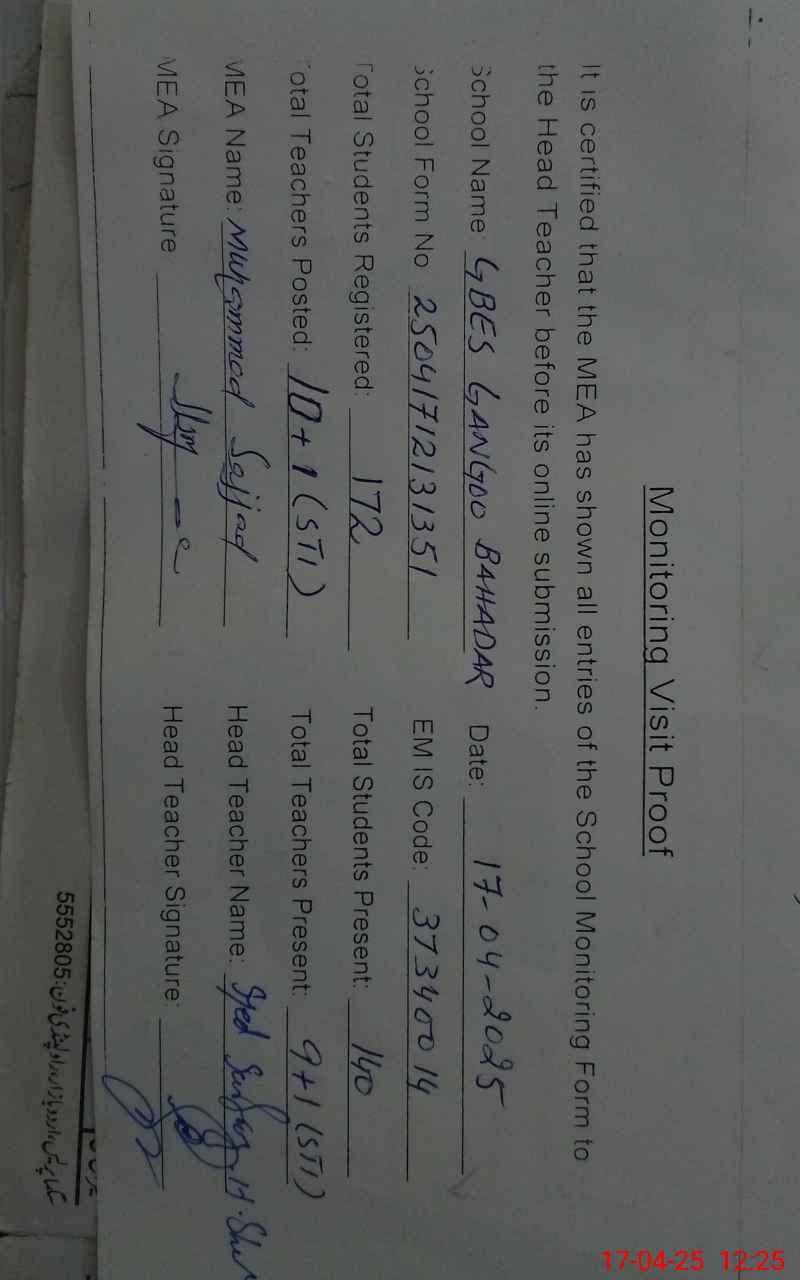 Monitoring Visit Proof
It is certified that the MEA has shown all entries of the School Monitoring Form to
the Head Teacher before its online submission.
School Name: GBES GANGOO BAHADAR Date: 17-04-2025
School Form No 250417121313351 EMIS Code: 37340014
Total Students Registered: 172 Total Students Present: 140
Total Teachers Posted: 10+1 (STI) Total Teachers Present: 9+1 (STI)
MEA Name: Muhammad Sajjad Head Teacher Name: Syed H. Shah
MEA Signature Head Teacher Signature:
5552805:
17-04-25 12:25